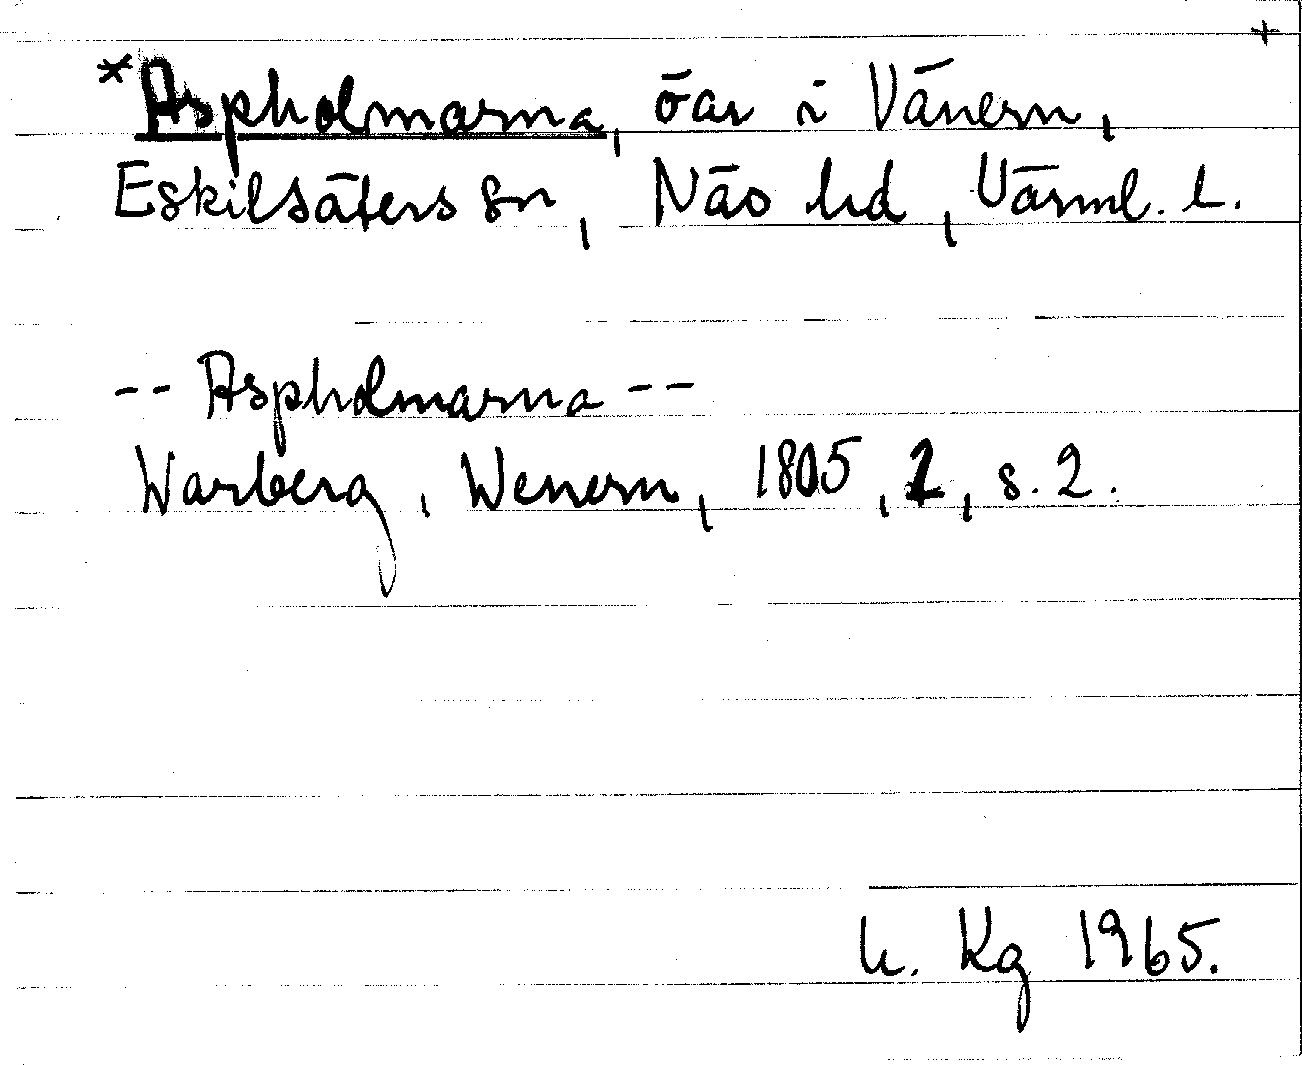 +
*Aspholmarna, öar i Vänern,
Eskilsäters sn, Näs hd, Värml. l.
-- Aspholmarna --
Warberg, Wenern, 1805, 1, s. 2.
Kg 1965.